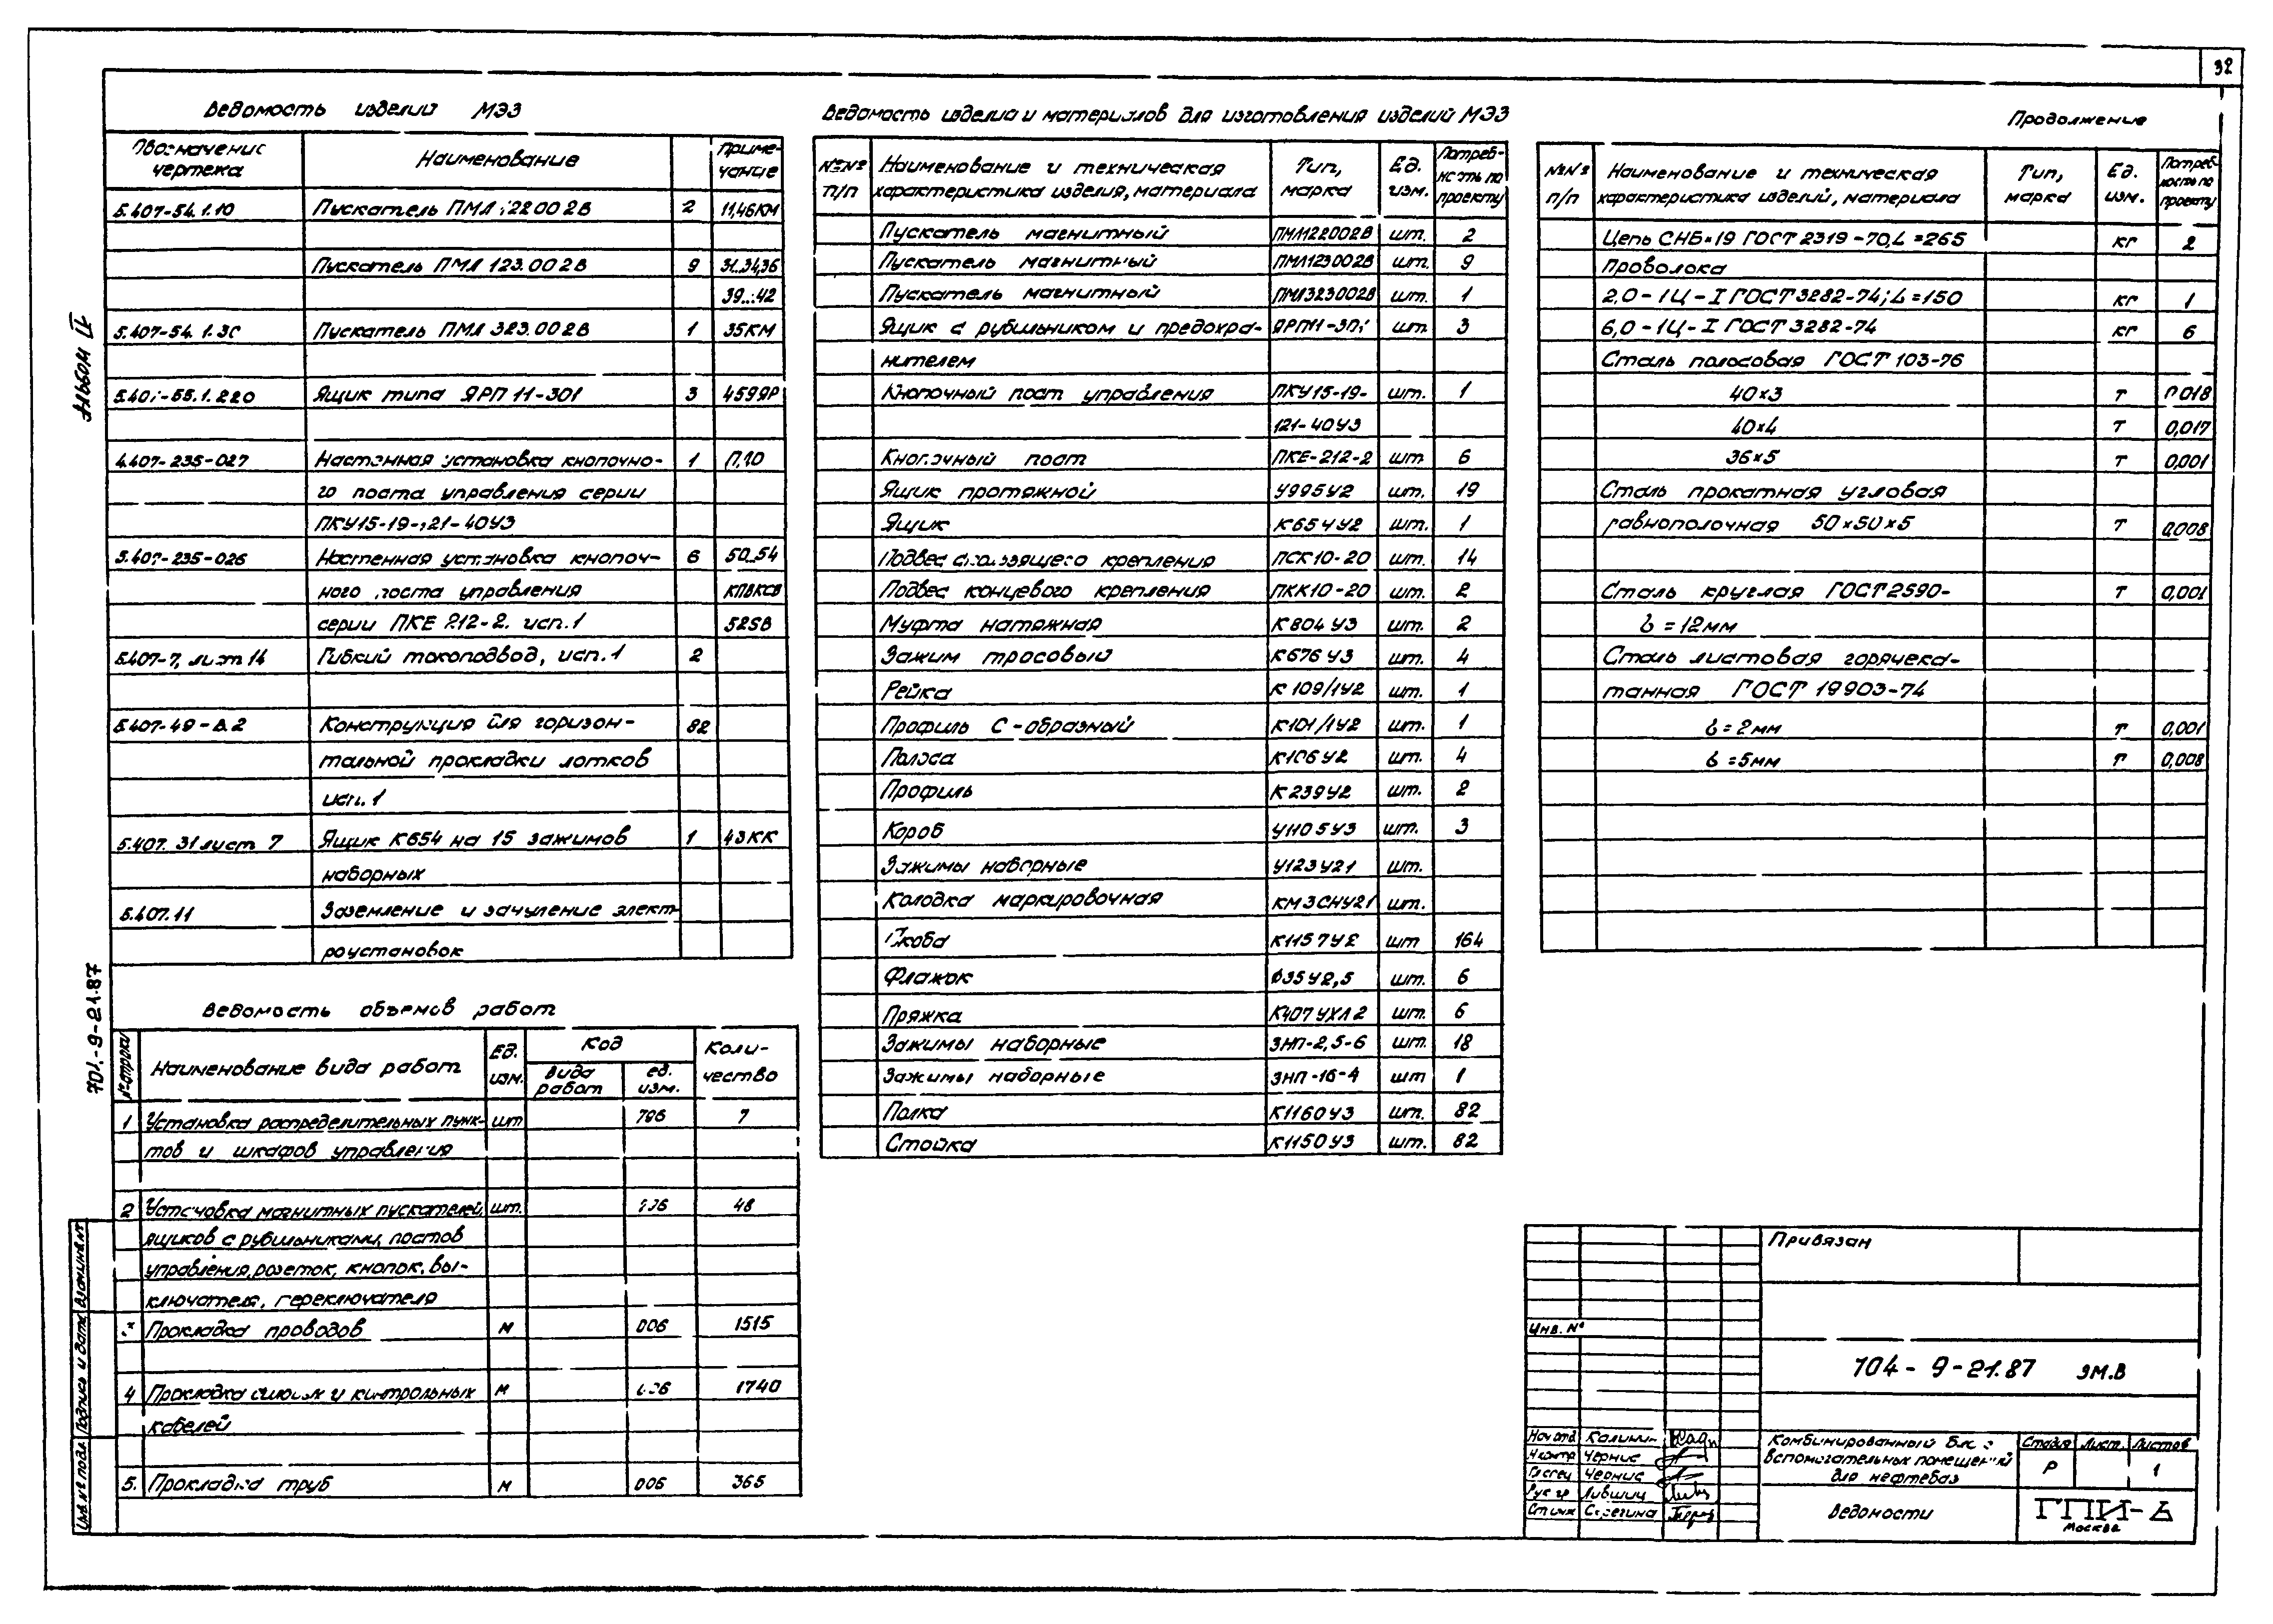 32
Альбом IV
704-9-21.87
Ведомость изделий МЭЗ
Обозначение чертежа | Наименование | | Примечание
5.407-54.1.10 | Пускатель ПМЛ 1220028 | 2 | 11,46КМ
Пускатель ПМЛ 123.0028 | 9 | 31..34,36
39...42
5.407-54.1.30 | Пускатель ПМЛ 323.0028 | 1 | 35КМ
5.407-55.1.220 | Ящик типа ЯРП 11-301 | 3 | 4599Р
4.407-235-027 | Настенная установка кнопочно- | 1 | П,10
го поста управления серии
ПКУ15-19-121-40У3
5.407-235-026 | Настенная установка кнопоч- | 6 | 50..54
ного поста управления | КПВКСВ
серии ПКЕ 212-2. исп.1 | 52SВ
5.407-7, лист 14 | Гибкий токоподвод, исп.1 | 2
5.407-49-А.2 | Конструкция для горизон- | 82
тальной прокладки лотков
исп.1
5.407.31 лист 7 | Ящик К654 на 15 зажимов | 1 | 43КК
наборных
5.407.11 | Заземление и зануление элект-
роустановок
Ведомость объемов работ
№ строки | Наименование вида работ | Ед. изм. | Код вида работ | ед. изм. | Количество
1 | Установка распределительных пунк- | шт | 796 | 7
тов и шкафов управления
2 | Установка магнитных пускателей, | шт. | | 48
ящиков с рубильниками, постов
управления, розеток, кнопок, вы-
ключателя, переключателя
Прокладка проводов | м | 006 | 1515
4 | Прокладка силовых и контрольных | м | | 1740
кабелей
5. | Прокладка труб | м | 006 | 365
Ведомость изделия и материалов для изготовления изделий МЭЗ
№№ п/п | Наименование и техническая характеристика изделия, материала | Тип, марка | Ед. изм. | Потребность по проекту
Пускатель магнитный | ПМЛ1220028 | шт. | 2
Пускатель магнитный | ПМЛ1230028 | шт. | 9
Пускатель магнитный | ПМЛ3230028 | шт. | 1
Ящик с рубильником и предохра- | ЯРП11-301 | шт | 3
нителем
Кнопочный пост управления | ПКУ15-19- | шт. | 1
121-40У3
Кнопочный пост | ПКЕ-212-2 | шт | 6
Ящик протяжной | У995У2 | шт. | 19
Ящик | К654У2 | шт. | 1
Подвес скользящего крепления | ПСК10-20 | шт. | 14
Подвес концевого крепления | ПКК10-20 | шт. | 2
Муфта натяжная | К804У3 | шт. | 2
Зажим тросовый | К676У3 | шт. | 4
Рейка | К109/1У2 | шт. | 1
Профиль С-образный | К101/1У2 | шт. | 1
Полоса | К106У2 | шт. | 4
Профиль | К239У2 | шт. | 2
Короб | У1105У3 | шт. | 3
Зажимы наборные | У123У21 | шт.
Колодка маркировочная | КМ3СНУ21 | шт.
Скоба | К1157У2 | шт | 164
Флажок | Ф35У2,5 | шт. | 6
Пряжка | К407УХЛ2 | шт. | 6
Зажимы наборные | ЗНП-2,5-6 | шт. | 18
Зажимы наборные | ЗНП-16-4 | шт | 1
Полка | К1160У3 | шт. | 82
Стойка | К1150У3 | шт. | 82
Продолжение
№№ п/п | Наименование и техническая характеристика изделий, материала | Тип, марка | Ед. изм. | Потребность по проекту
Цепь СНБ×19 ГОСТ 2319-70, L=265 | кг | 2
Проволока
2,0-1Ц-I ГОСТ 3282-74; L=150 | кг | 1
6,0-1Ц-I ГОСТ 3282-74 | кг | 6
Сталь полосовая ГОСТ 103-76
40×3 | т | 0,018
40×4 | т | 0,017
36×5 | т | 0,001
Сталь прокатная угловая
равнополочная 50×50×5 | т | 0,008
Сталь круглая ГОСТ 2590- | т | 0,001
б=12мм
Сталь листовая горячека-
танная ГОСТ 19903-74
б=2мм | т | 0,001
б=5мм | т | 0,008
Взам.инв.№
Подпись и дата
Инв.№ подл
Привязан
Инв. №
704-9-21.87 ЭМ.В
Нач отд | Калинин
Н.контр | Чернис
Гл спец | Чернис
Рук гр | Лившиц
Ст инж | Серегина
Комбинированный блок
вспомогательных помещений
для нефтебаз
Стадия | Лист | Листов
Р | | 1
Ведомости
ГПИ-6
Москва